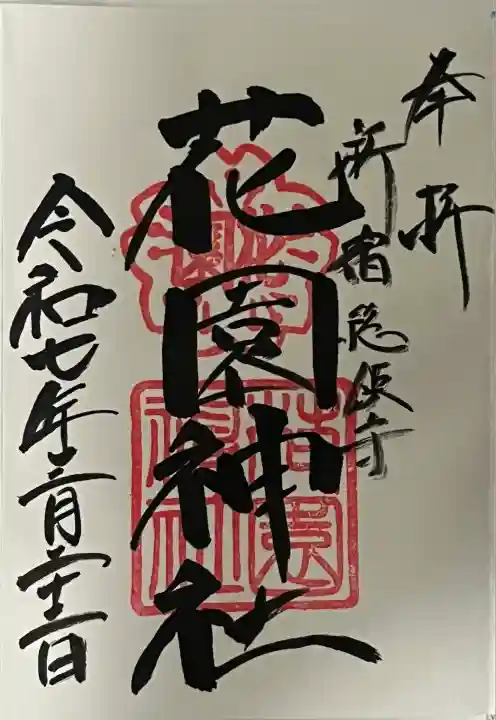 奉拝
新宿総鎮守
花園神社
令和七年二月二十二日
花園神社